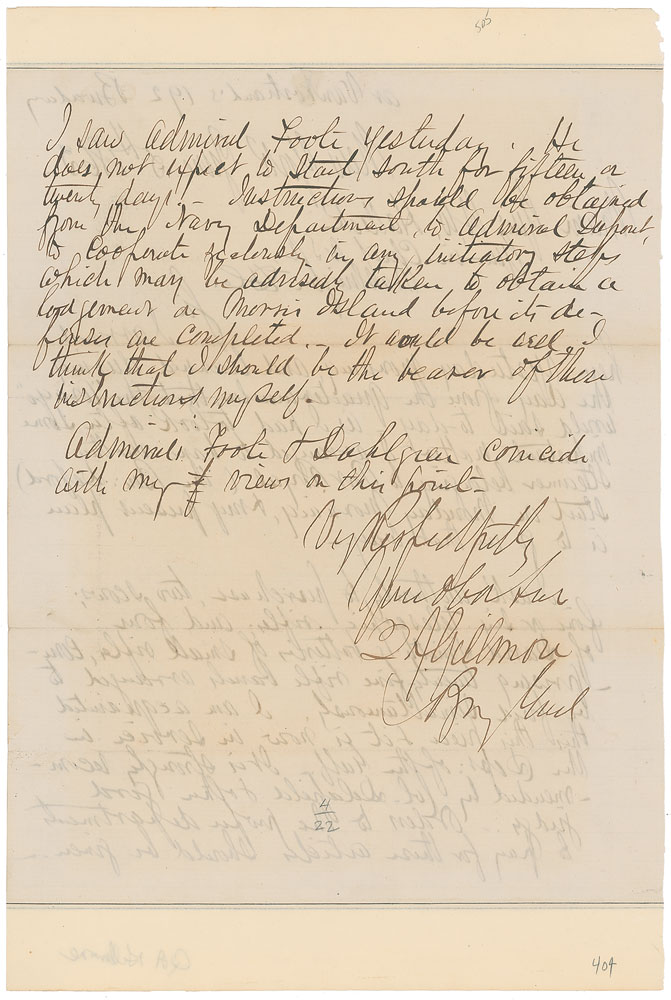 506
I saw Admiral Foote yesterday. He
does not expect to start south for fifteen or
twenty days. – Instructions should be obtained
from the Navy Department, to Admiral Dupont,
to cooperate zealously in any initiatory steps
which may be advisedly taken to obtain a
lodgement on Morris Island before its de-
fenses are completed. – It would be well, I
think that I should be the bearer of these
instructions myself.
Admirals Foote & Dahlgren coincide
with my views on this point –
Very Respectfully
Your obt Sur
Q A Gillmore
Brig Genl
4
22
404